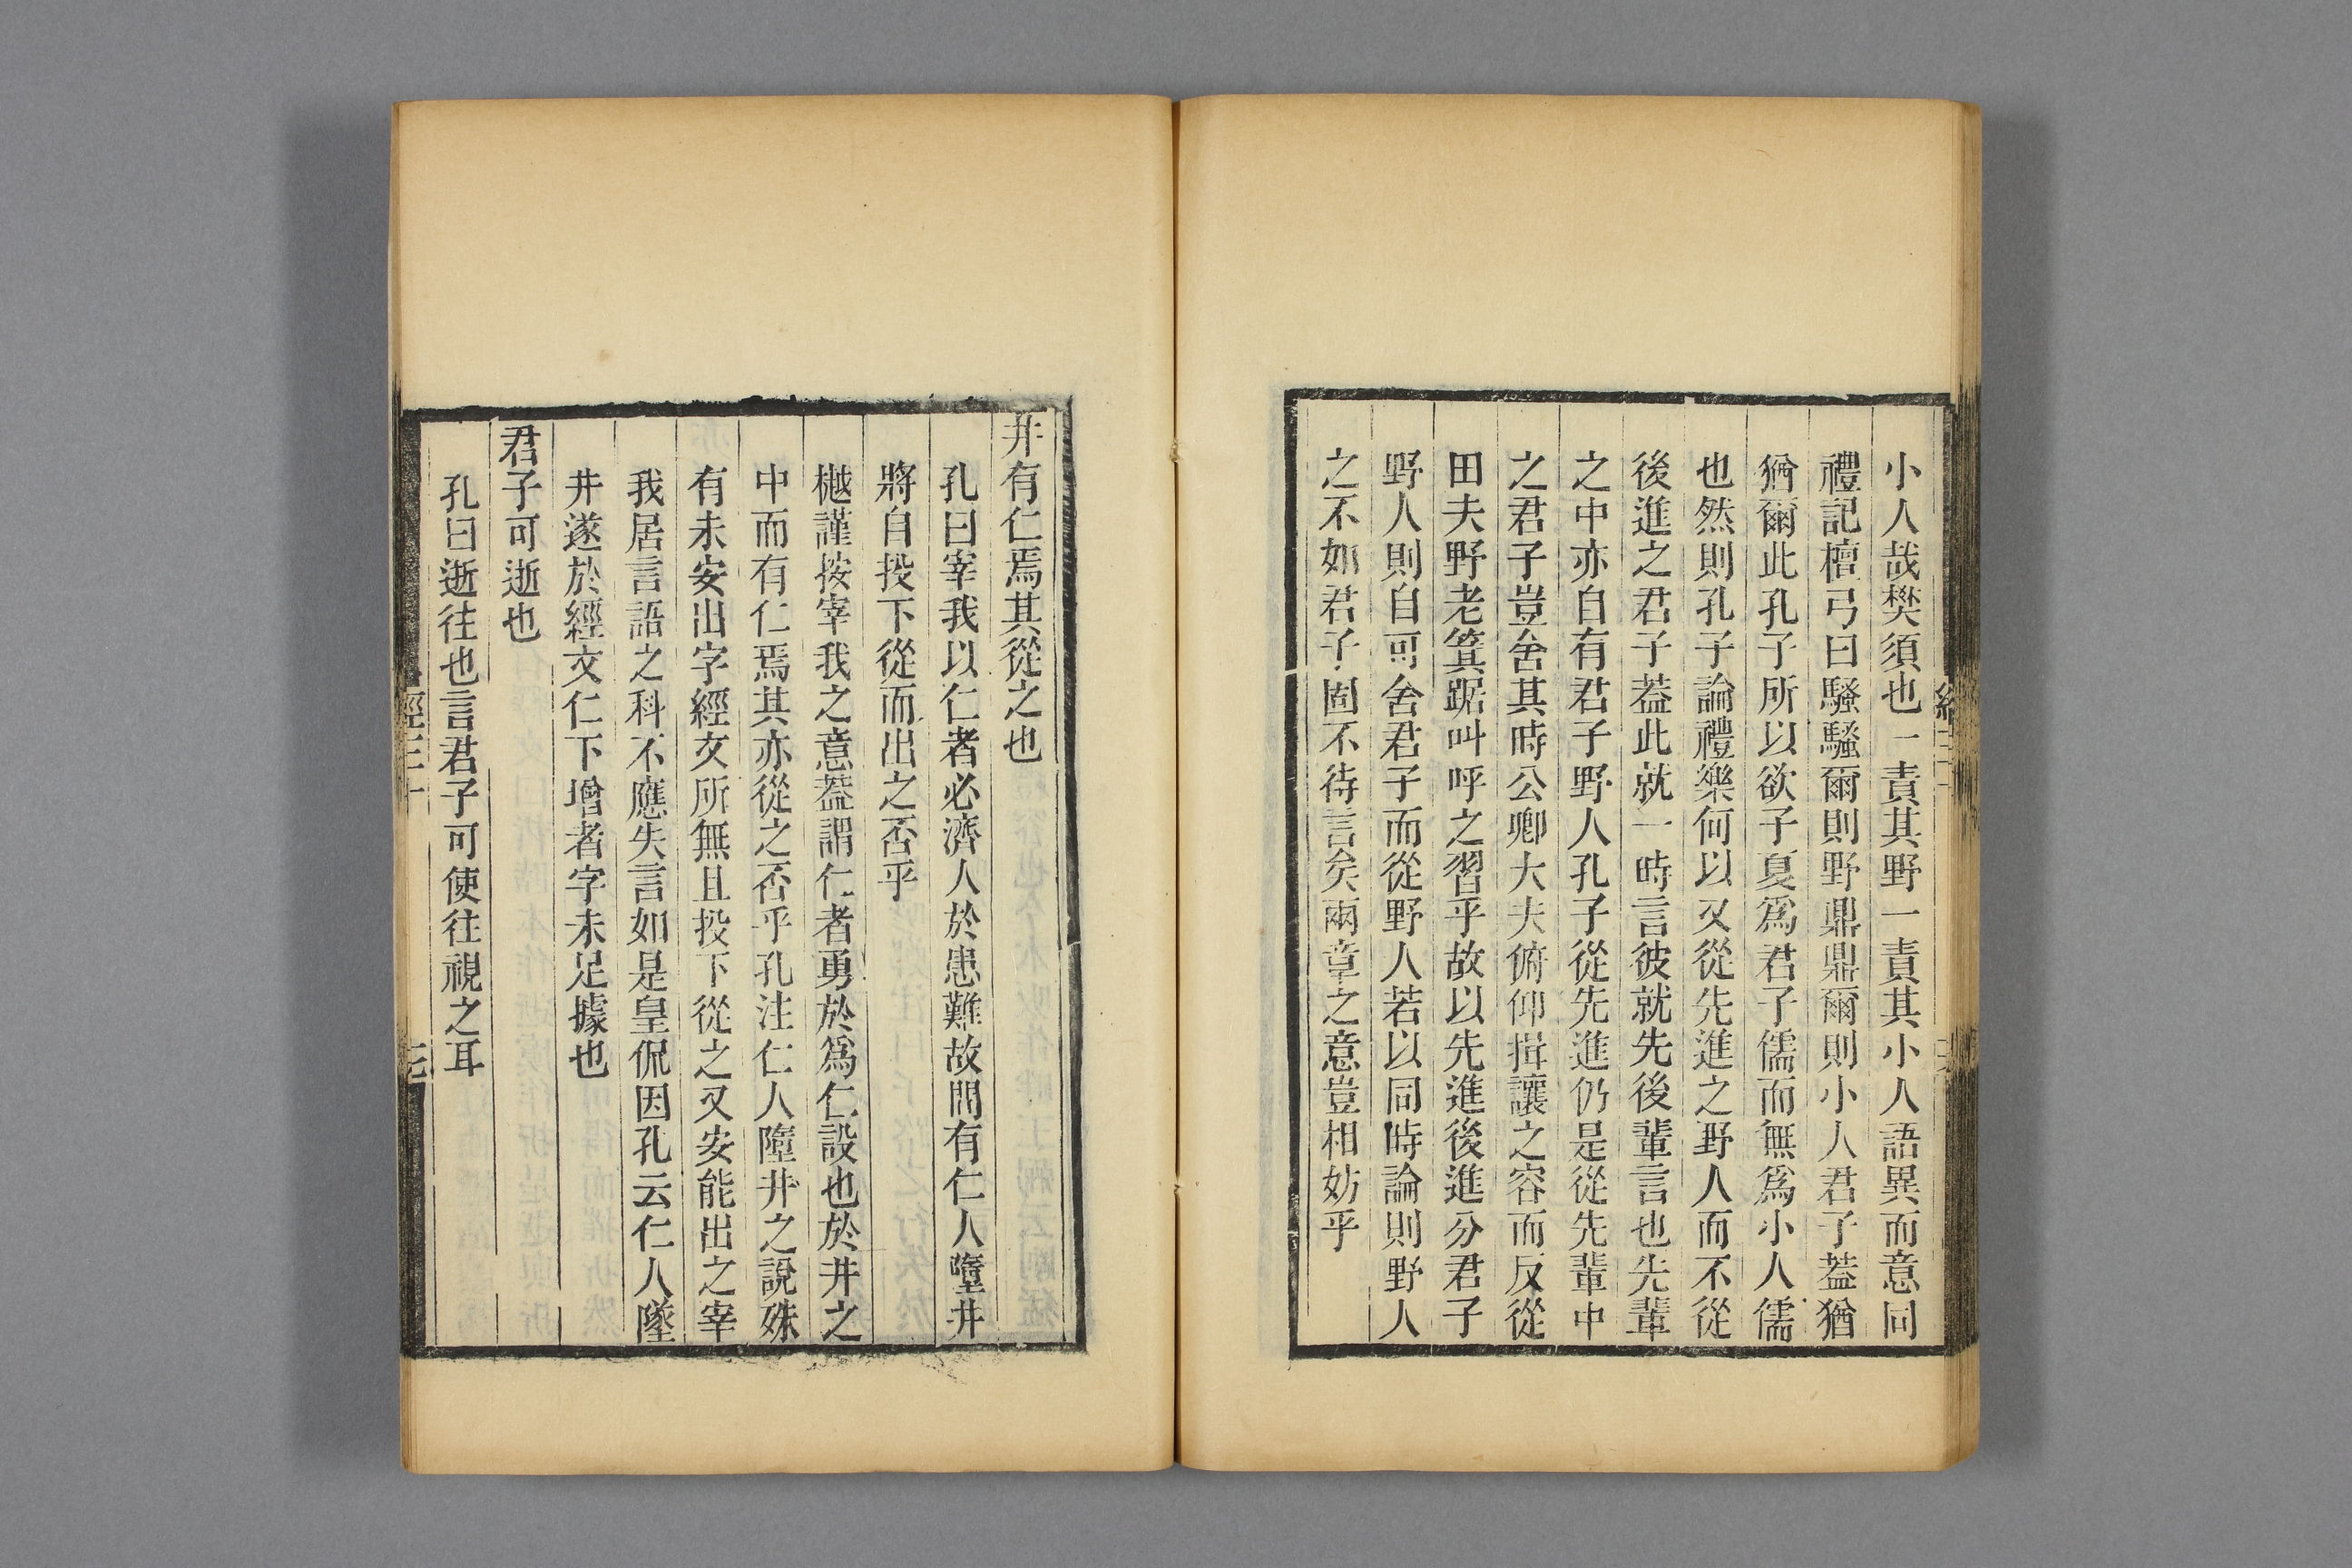 小人哉樊須也一責其野一責其小人語異而意同
禮記檀弓曰騷騷爾則野鼎鼎爾則小人君子葢猶
猶爾此孔子所以欲子夏爲君子儒而無爲小人儒
也然則孔子論禮樂何以又從先進之野人而不從
後進之君子葢此就一時言彼就先後輩言也先輩
之中亦自有君子野人孔子從先進仍是從先輩中
之君子豈舍其時公卿大夫俯仰揖讓之容而反從
田夫野老箕踞叫呼之習乎故以先進後進分君子
野人則自可舍君子而從野人若以同時論則野人
之不如君子固不待言矣兩章之意豈相妨乎
井有仁焉其從之也
孔曰宰我以仁者必濟人於患難故問有仁人墮井
將自投下從而出之否乎
樾謹按宰我之意葢謂仁者勇於爲仁設也於井之
中而有仁焉其亦從之否乎孔注仁人墮井之說殊
有未安出字經文所無且投下從之又安能出之宰
我居言語之科不應失言如是皇侃因孔云仁人墜
井遂於經文仁下增者字未足據也
君子可逝也
孔曰逝往也言君子可使往視之耳
經三十